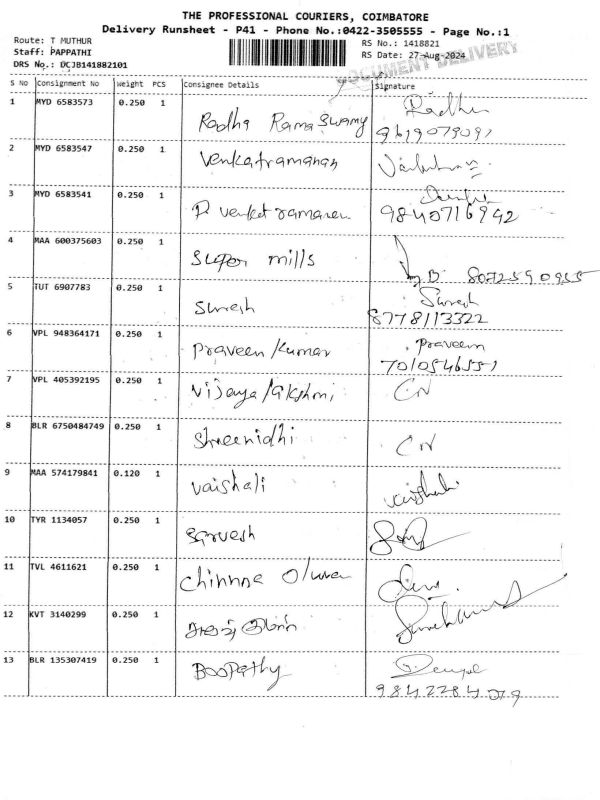 THE PROFESSIONAL COURIERS, COIMBATORE
Delivery Runsheet - P41 - Phone No.:0422-3505555 - Page No.:1
Route: T MUTHUR
RS No.: 1418821
Staff: PAPPATHI
RS Date: 27-Aug-2024
DRS No.: DCJB141882101
DOCUMENT DELIVERY
S No Consignment No Weight PCS Consignee Details Signature
1 MYD 6583573 0.250 1 Radha Rama Swamy Radha
9619079091
2 MYD 6583547 0.250 1 Venkatramanan
3 MYD 6583541 0.250 1 P venket ramanen
9840716942
4 MAA 600375603 0.250 1 Super mills
8072590955
5 TUT 6907783 0.250 1 Suresh Suresh
8778113322
6 VPL 948364171 0.250 1 Praveen Kumar Praveen
7010546551
7 VPL 405392195 0.250 1 Vijaya lakshmi CN
8 BLR 6750484749 0.250 1 Shreenidhi CN
9 MAA 574179841 0.120 1 Vaishali Vaishali
10 TYR 1134057 0.250 1 Sarvesh
11 TVL 4611621 0.250 1 Chinnoe
12 KVT 3140299 0.250 1
13 BLR 135307419 0.250 1 Boopathy
9842284079